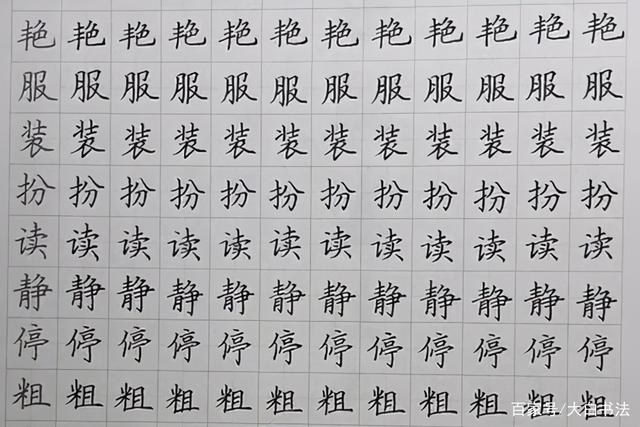 艳艳艳艳艳艳艳艳艳艳艳艳
服服服服服服服服服服服服
装装装装装装装装装装装装
扮扮扮扮扮扮扮扮扮扮扮扮
读读读读读读读读读读读读
静静静静静静静静静静静静
停停停停停停停停停停停停
粗粗粗粗粗粗粗粗粗粗粗粗
百家号/大白书法